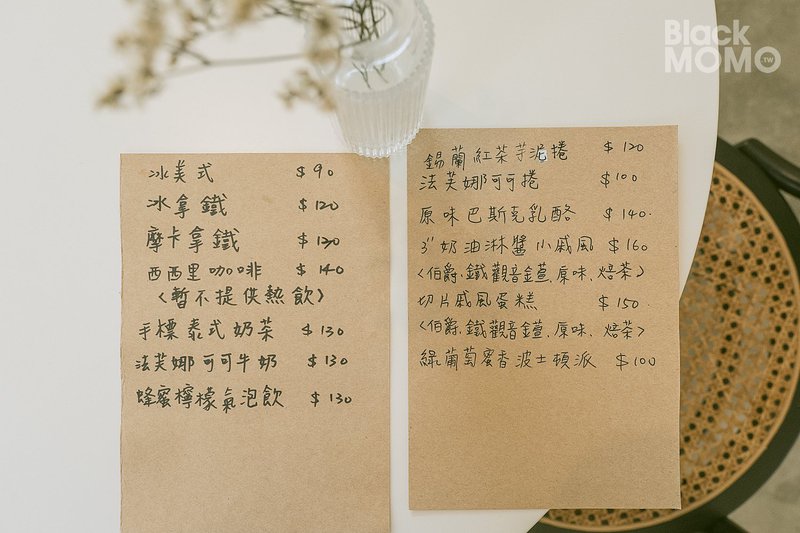 Black
MOMO.TW
冰美式 $90
冰拿鐵 $120
摩卡拿鐵 $130
西西里咖啡 $140
〈暫不提供熱飲〉
手標泰式奶茶 $130
法芙娜可可牛奶 $130
蜂蜜檸檬氣泡飲 $130
錫蘭紅茶芋泥捲 $120
法芙娜可可捲 $100
原味巴斯克乳酪 $140.
3"奶油淋醬小戚風 $160
〈伯爵、鐵觀音、原味、焙茶〉
切片戚風蛋糕 $150.
〈伯爵、鐵觀音、原味、焙茶〉
綠葡萄蜜香波士頓派 $100